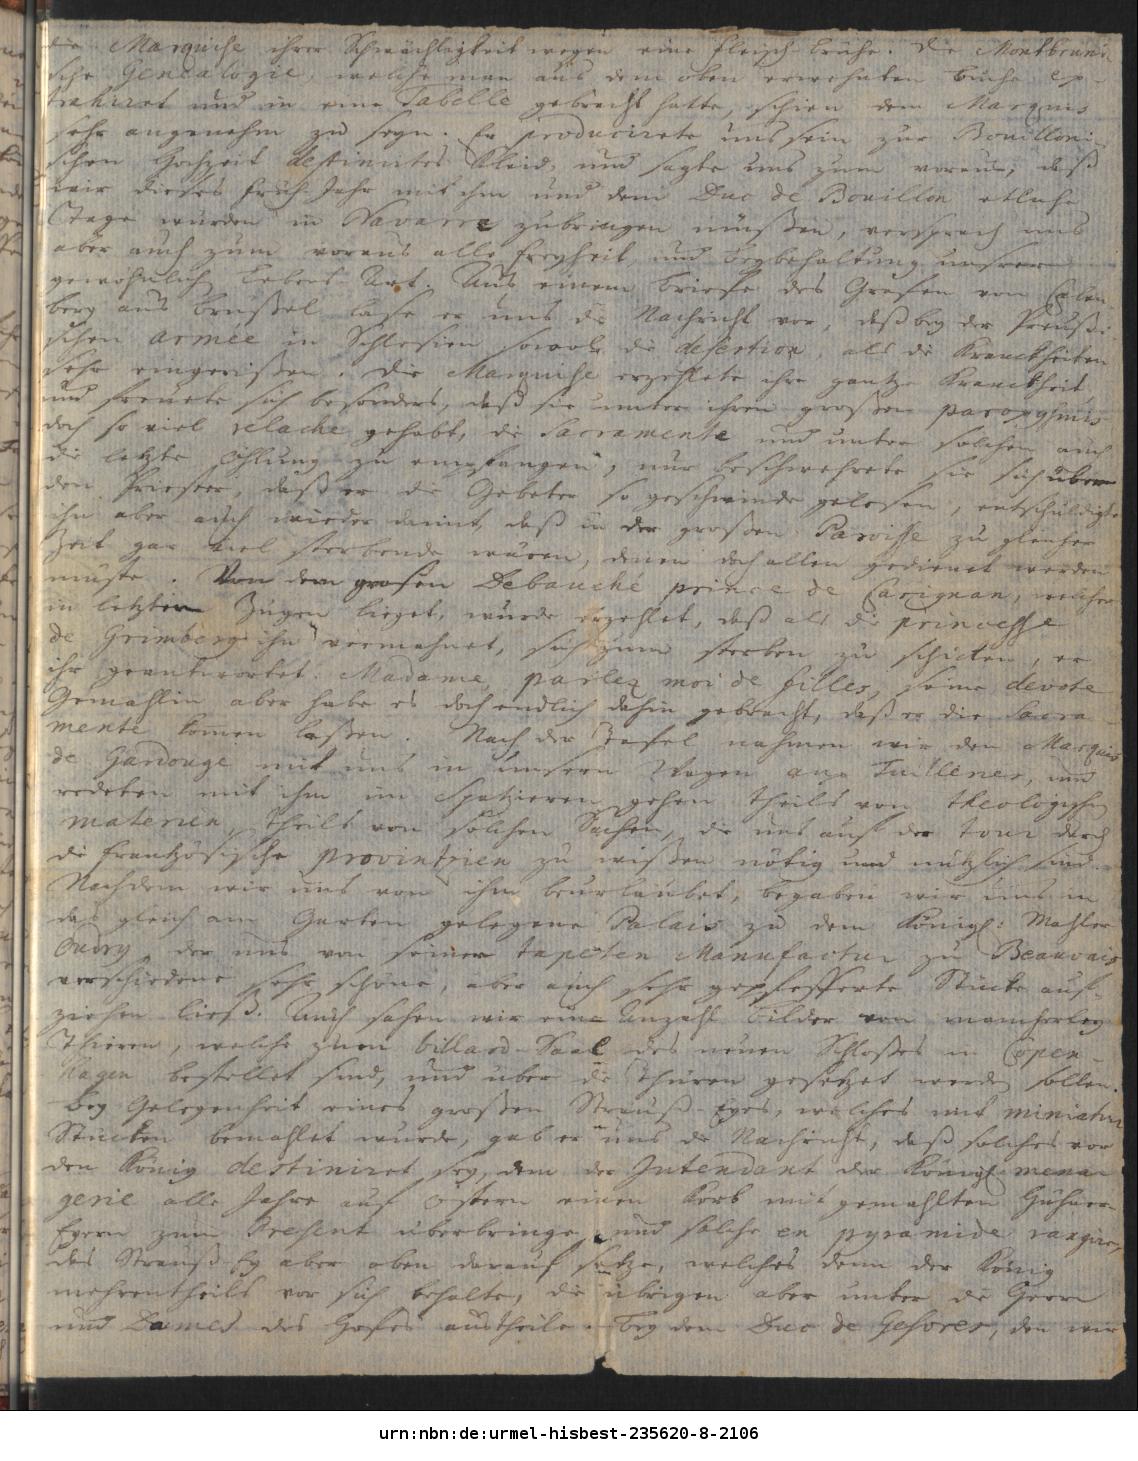 die Marquise ihrer Schwächligkeit wegen eine Fleisch brühe. Die Montbruni-
sche Genealogie, welche man aus dem oben erwehnten buche ex-
trahiret und in eine Tabelle gebracht hatte, schien dem Marquis
sehr angenehm zu seyn. Er producirete uns sein zur Bouilloni-
schen Hochzeit destinirtes Kleid, und sagte uns zum voraus, daß
wir dieses früh-Jahr mit ihm und dem Duc de Bouillon etliche
Tage würden in Navarre zubringen müßen, versprach uns
aber auch zum voraus alle Freyheit und beybehaltung unserer
gewöhnlich Lebens-Art. Aus einem briefe des Grafen von
berg aus brüßel lase er uns die Nachricht vor, daß bey der Preußi-
schen armée in Schlesien sowol die desertion, als die Kranckheiten
sehr eingerißen. Die Marquise erzehlete ihre gantze Kranckheit
und freuete sich besonders, daß sie unter ihren großen paroxysmis
doch so viel relache gehabt, die Sacramente und unter solchen auch
die letzte Öhlung zu empfangen, nur beschwehrete sie sich über
den Priester, daß er die Gebeter so geschwinde gelesen, entschuldigte
ihn aber auch wieder damit, daß in der großen Paroisse zu gleicher
Zeit gar viel sterbende wären, denen doch allen gedienet werden
müste. Von dem großen Debauché prince de Carignan, welcher
in letzten Zügen lieget, wurde erzehlet, daß als die princesse
de Grimberg ihn vermahnet, sich zum sterben zu schicken, er
ihr geantwortet: Madame, parlez moi de filles, seine devote
Gemahlin aber habe es doch endlich dahin gebracht, daß er die Sacra-
mente komen laßen. Nach der Tafel nahmen wir den Marquis
de Gardouge mit uns in unsern Wagen aux Tuilleries, und
redeten mit ihm im Spatzieren gehen theils von theologischen
materien, theils von solchen Sachen, die uns auf der tour durch
die frantzösische provintzien zu wißen nötig und nützlich sind.
Nachdem wir uns von ihm beurlaubet, begaben wir uns in
das gleich am Garten gelegene Palais zu dem Königl: Mahler
Oudry, der uns von seiner tapeten Manufactur zu Beauvais
verschiedene sehr schöne, aber auch sehr gepfefferte Stücke auf-
ziehen ließ. Auch sahen wir eine Anzahl bilder von mancherley
Thieren, welche zum billard-Saal des neuen Schloßes in Copen-
hagen bestellet sind, und über die Thüren gesetzet werden sollen.
bey Gelegenheit eines großen Strauß-Eyes, welches mit miniatur
Stücken bemahlet wurde, gab er uns die Nachricht, daß solches vor
den König destiniret sey, dem der Intendant der Königl: mena-
gerie alle Jahre auf Ostern einen Korb mit gemahlten Hühner-
Eyern zum Present überbringe, und solche en pyramide rangire,
das Strauß-Ey aber oben darauf setze, welches denn der König
mehrentheils vor sich behalte, die übrigen aber unter die Herrn
und Dames des Hofes austheile. Bey dem Duc de Gesvres, den wir
urn:nbn:de:urmel-hisbest-235620-8-2106